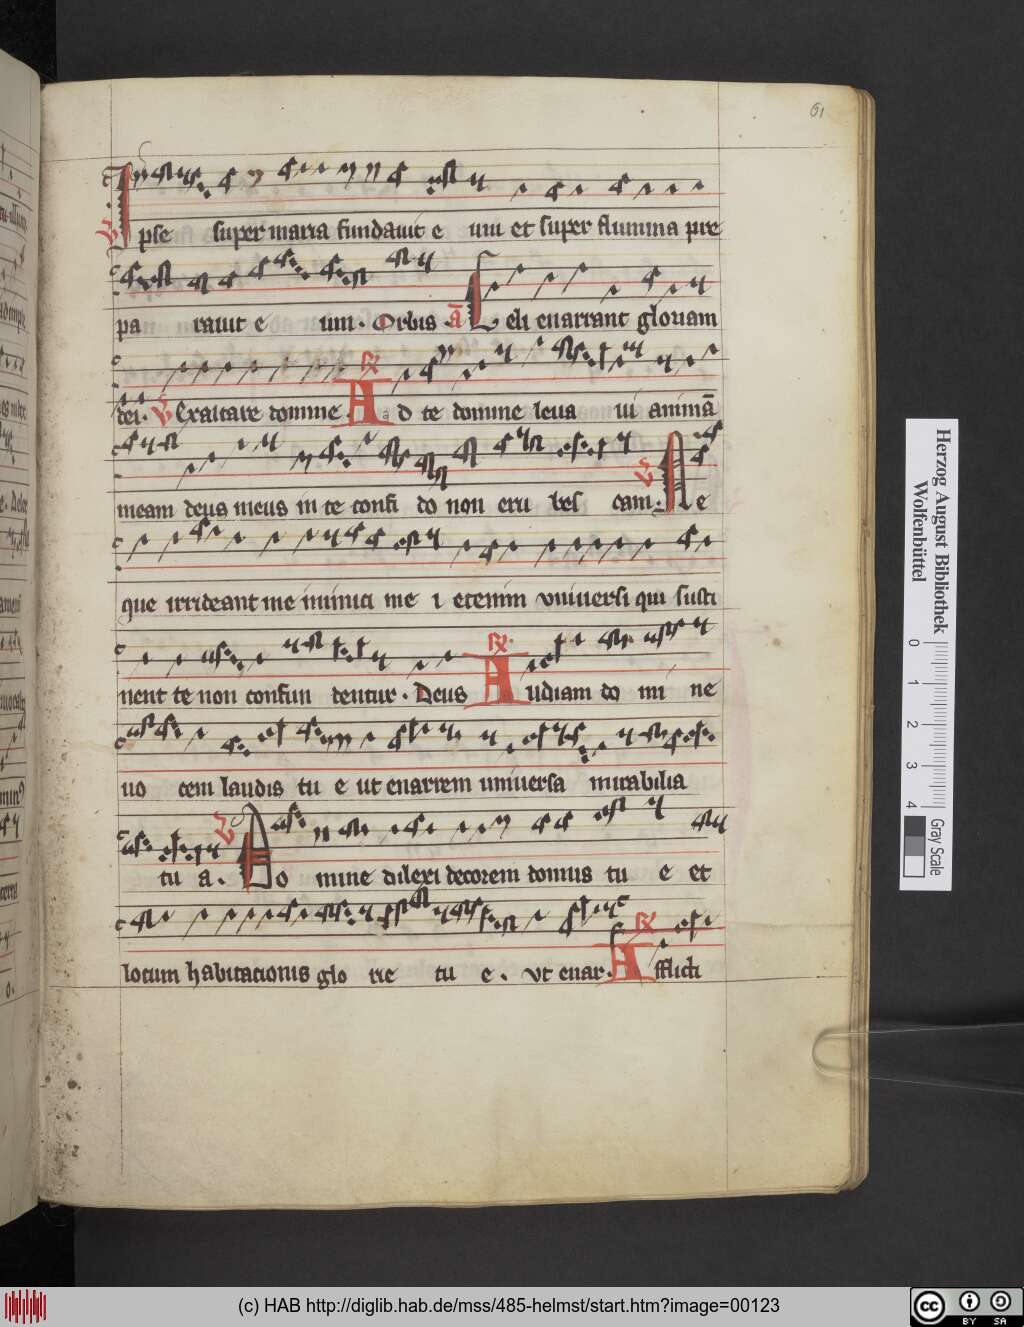 61
℣ Ipse super maria fundavit e um et super flumina pre
pa ravit e um. Orbis. ā Celi enarrant gloriam
dei. ℣ Exaltare domine. ℞ A a d te domine leva vi animā
meam deus meus in te confi do non eru bes cam. ℣ Ne
que irrideant me inimici me i etenim universi qui susti
nent te non confun dentur. Deus ℞ Audiam do mi ne
vo cem laudis tu e ut enarrem universa mirabilia
tu a. ℣ Do mine dilexi decorem domus tu e et
locum habitacionis glo rie tu e. Ut enar. ℞ Afflicti
Herzog August Bibliothek
Wolfenbüttel
0 1 2 3 4 Gray Scale
(c) HAB http://diglib.hab.de/mss/485-helmst/start.htm?image=00123
cc BY SA